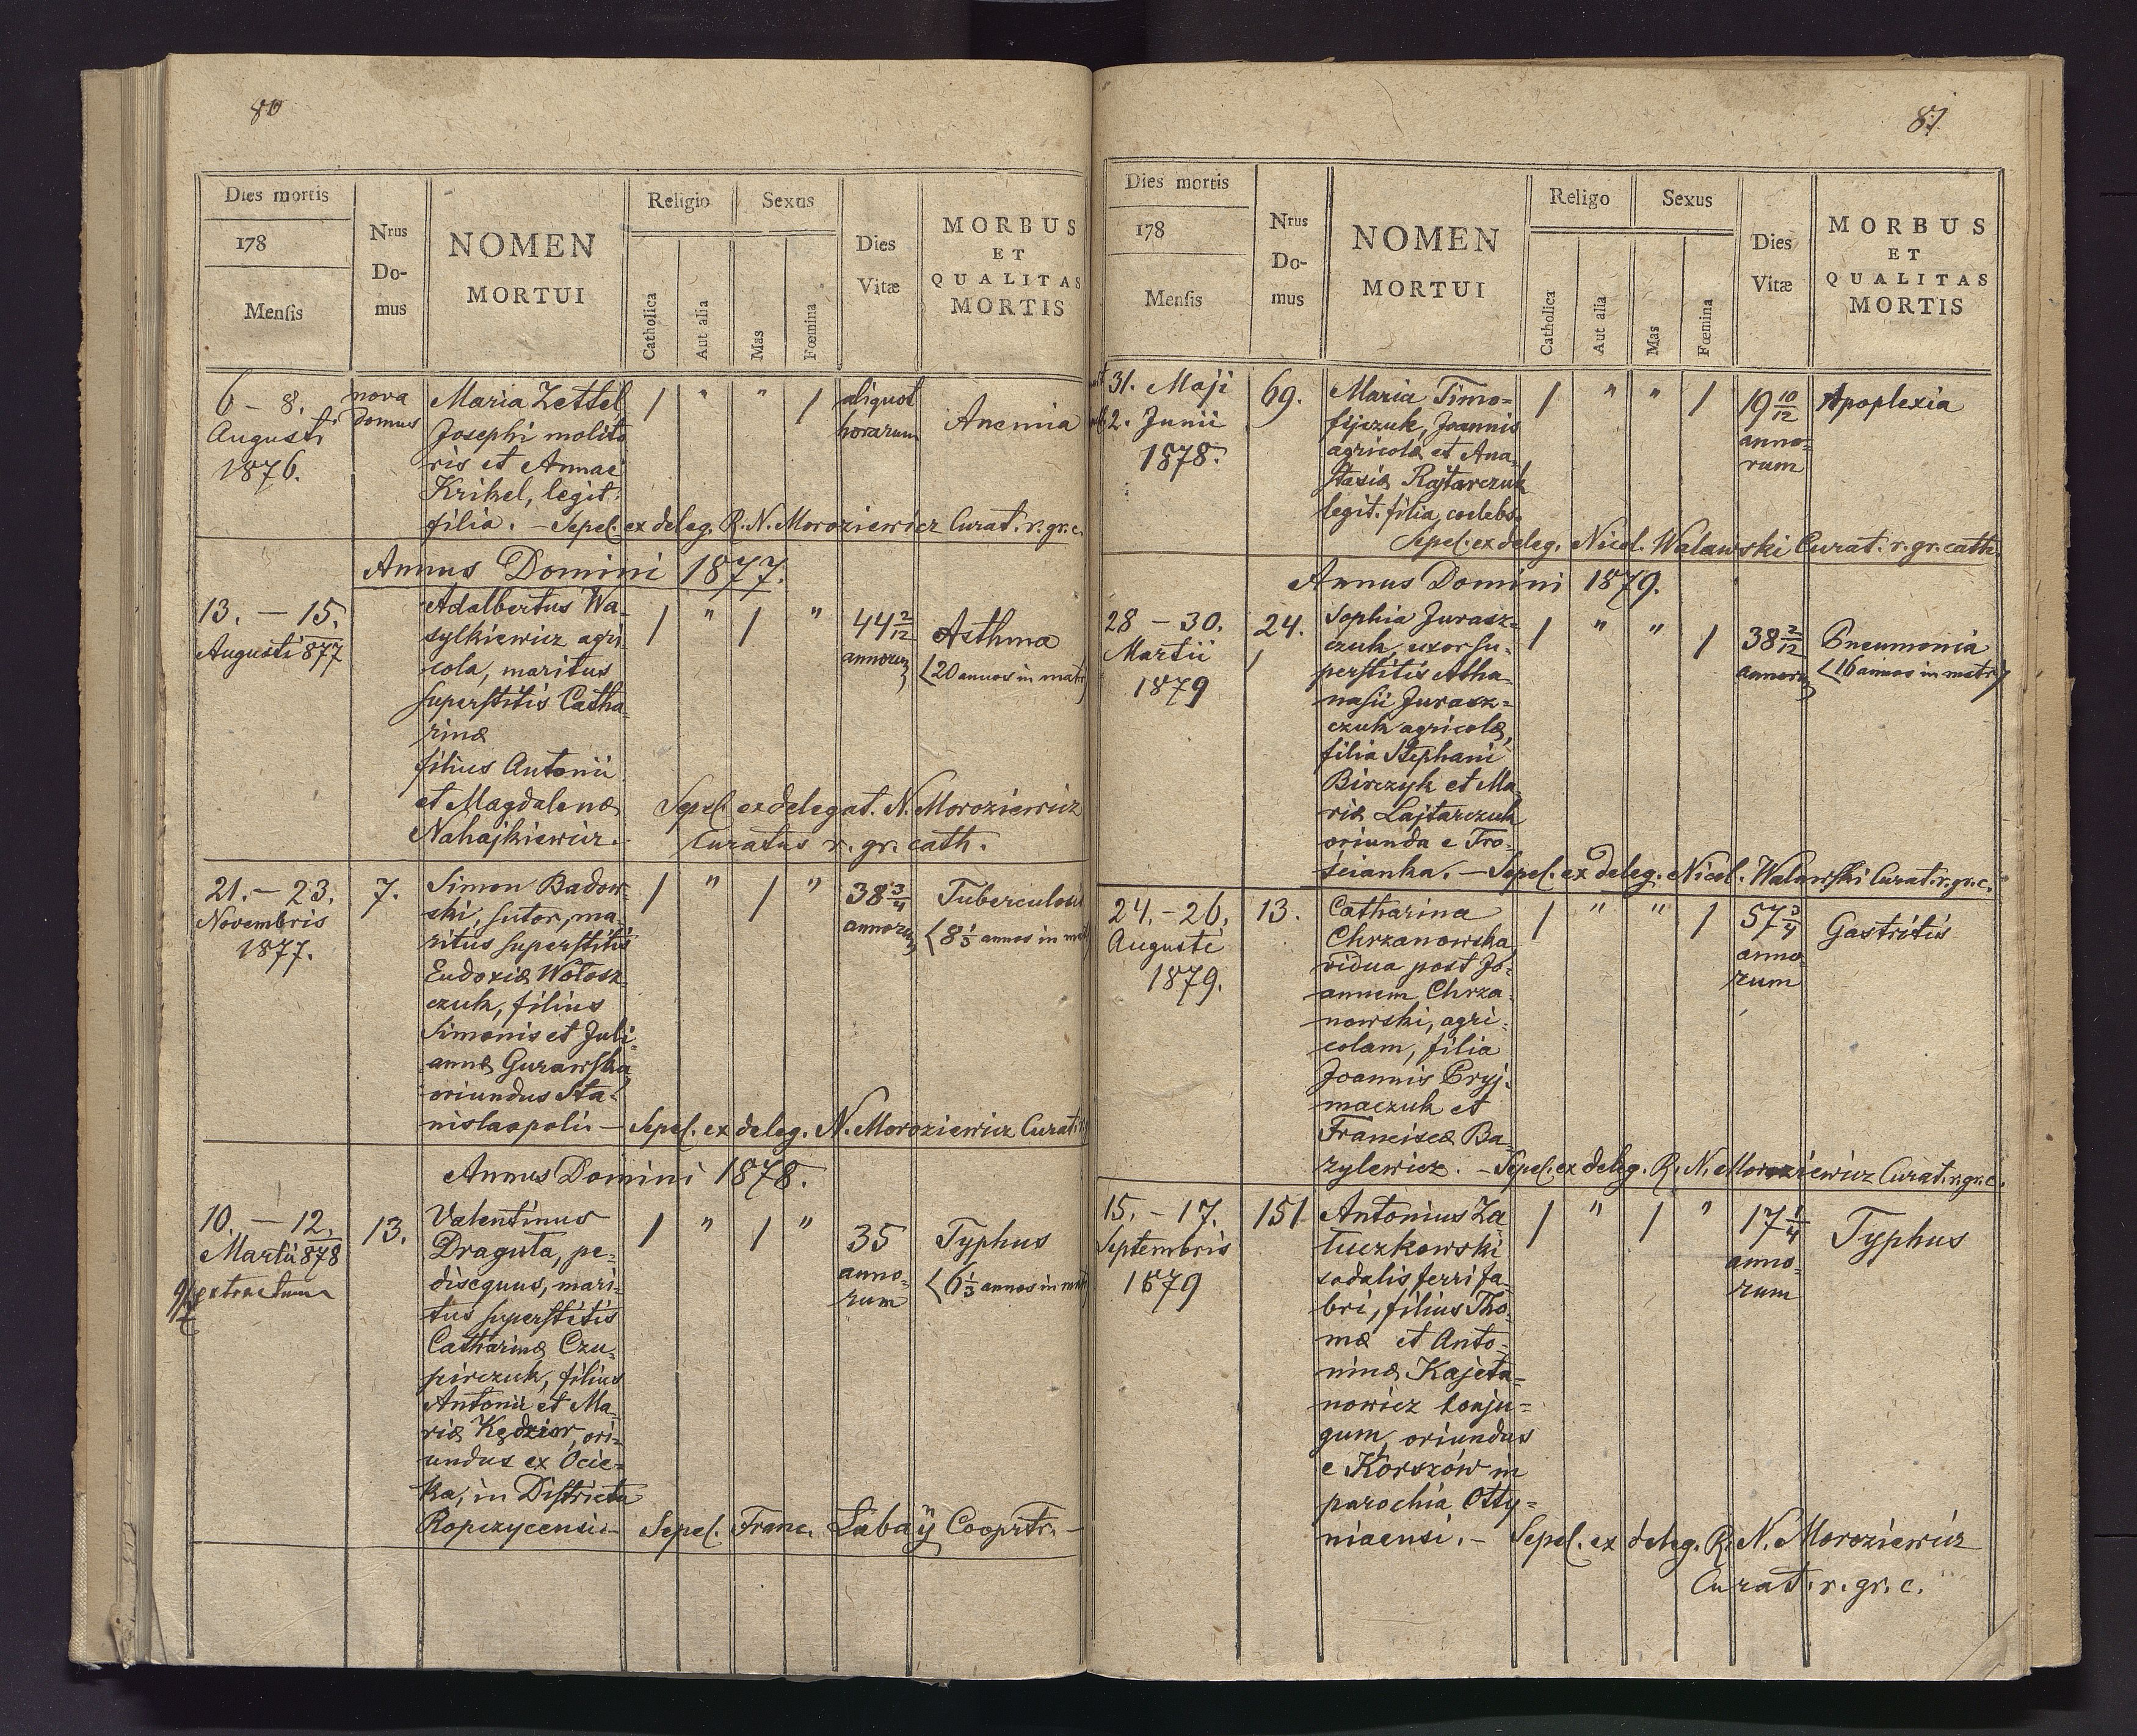 80
Dies mortis
178
Mensis
Nrus
Do-
mus
NOMEN
MORTUI
Religio
Sexus
Catholica
Aut alia
Mas
Fœmina
Dies
Vitæ
MORBUS
ET
QUALITAS
MORTIS
6 – 8.
Augusti
1876.
nova
domus
Maria Zettel,
Josephi molito
ris et Annae
Krikel, legit.
filia. – Sepel. ex deleg. R. N. Moroziewicz Curat. r. gr. c.
/ " " /
aliquot
horarum
Anemia
Annus Domini 1877.
13. – 15.
Augusti 877
Adalbertus Wa-
sylkiewicz agri
cola, maritus
superstitis Catha-
rinæ
filius Antonii
et Magdalenæ
Nahajkiewicz.
/ " / "
44 2/12
annorum
Asthma
(20 annos in matr)
Sepel. ex delegat. N. Moroziewicz
Curatus r. gr. cath.
21. – 23.
Novembris
1877.
7.
Simon Badow-
ski, sutor, ma-
ritus superstitis
Eudoxiæ Wołosz
czuk, filius
Simonis et Juli-
annæ Gurawska,
oriundus Sta-
nislaopoli – Sepel. ex deleg. N. Moroziewicz Curat. r.
/ " / "
38 3/4
annorum
Tuberculosis
(8 1/3 annos in mat
Annus Domini 1878.
10. – 12.
Martii 878
extractum
13.
Valentinus
Draguta, pe-
disequus, mari-
tus superstitis
Catharinæ Czu-
pirczuk, filius
Antonii et Ma-
riæ Kędzior, ori-
undus ex Ocie-
ka, in Districtu
Ropczycensi – Sepel. Franc. Łabaÿ Cooprtr. –
/ " / "
35
anno-
rum
Typhus
(6 1/3 annos in mat)
81
Dies mortis
178
Mensis
Nrus
Do-
mus
NOMEN
MORTUI
Religo
Sexus
Catholica
Aut alia
Mas
Fœmina
Dies
Vitæ
MORBUS
ET
QUALITAS
MORTIS
31. Maji
2. Junii
1878.
69.
Maria Timo-
fijczuk, Joannis
agricolæ et Ana-
stasiæ Rajtarczuk
legit. filia, coelebs.
Sepel. ex deleg. Nicol. Walawski Curat. r. gr. cath.
/ " " /
19 10/12
anno-
rum
Apoplexia
Annus Domini 1879.
28 – 30.
Martii
1879
24.
Sophia Jurasz-
czuk, uxor su-
perstitis Atha-
nasii Jurasz-
czuk agricolæ,
filia Stephani
Birczyk et Ma-
riæ Lajtarczuk
oriunda e Tro-
ścianka. – Sepel. ex deleg. Nicol. Walawski Curat. r. gr. c.
/ " " /
38 2/12
annorum
Pneumonia
(16 annos in matr)
24. – 26.
Augusti
1879.
13.
Catharina
Chrzanowska,
vidua post Jo-
annem Chrza-
nowski, agri-
colam, filia
Joannis Pryj-
maczuk et
Franciscæ Ba-
zylewicz. – Sepel. ex deleg. R. N. Moroziewicz Curat. r. gr. c.
/ " " /
57 3/4
anno-
rum
Gastritis
15. – 17.
Septembris
1879
151
Antonius Za-
łuczkowski
sodalis ferri fa-
bri, filius Tho-
mæ et Anto-
ninæ Kajeta-
nowicz conju-
gum, oriundus
e Korszów in
parochia Otty-
niaensi. – Sepel. ex deleg. R. N. Moroziewicz
Curat. r. gr. c.
/ " / "
17 1/4
anno-
rum
Typhus